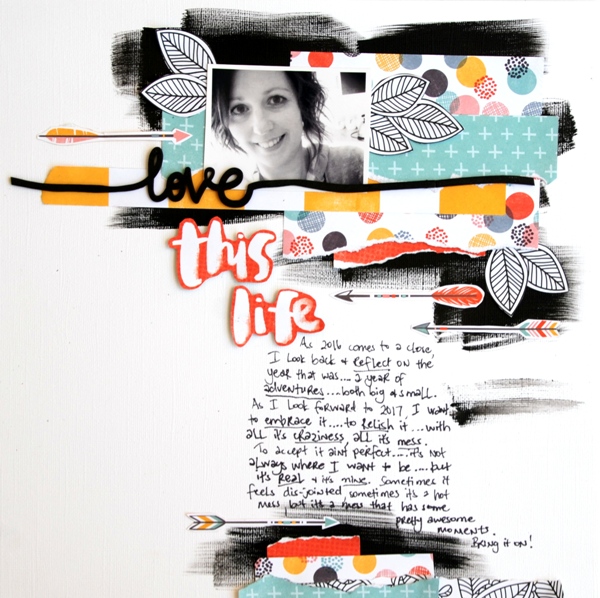 love
this
life
As 2016 comes to a close,
I look back & reflect on the
year that was.... a year of
adventures.... both big & small.
As I look forward to 2017, I want
to embrace it....to relish it...with
all it's craziness, all it's mess.
To accept it aint perfect.....it's not
always where I want to be....but
it's real & it's mine. Sometimes it
feels dis-jointed, sometimes it's a hot
mess, but it's a mess that has some
pretty awesome
moments.
Bring it on!